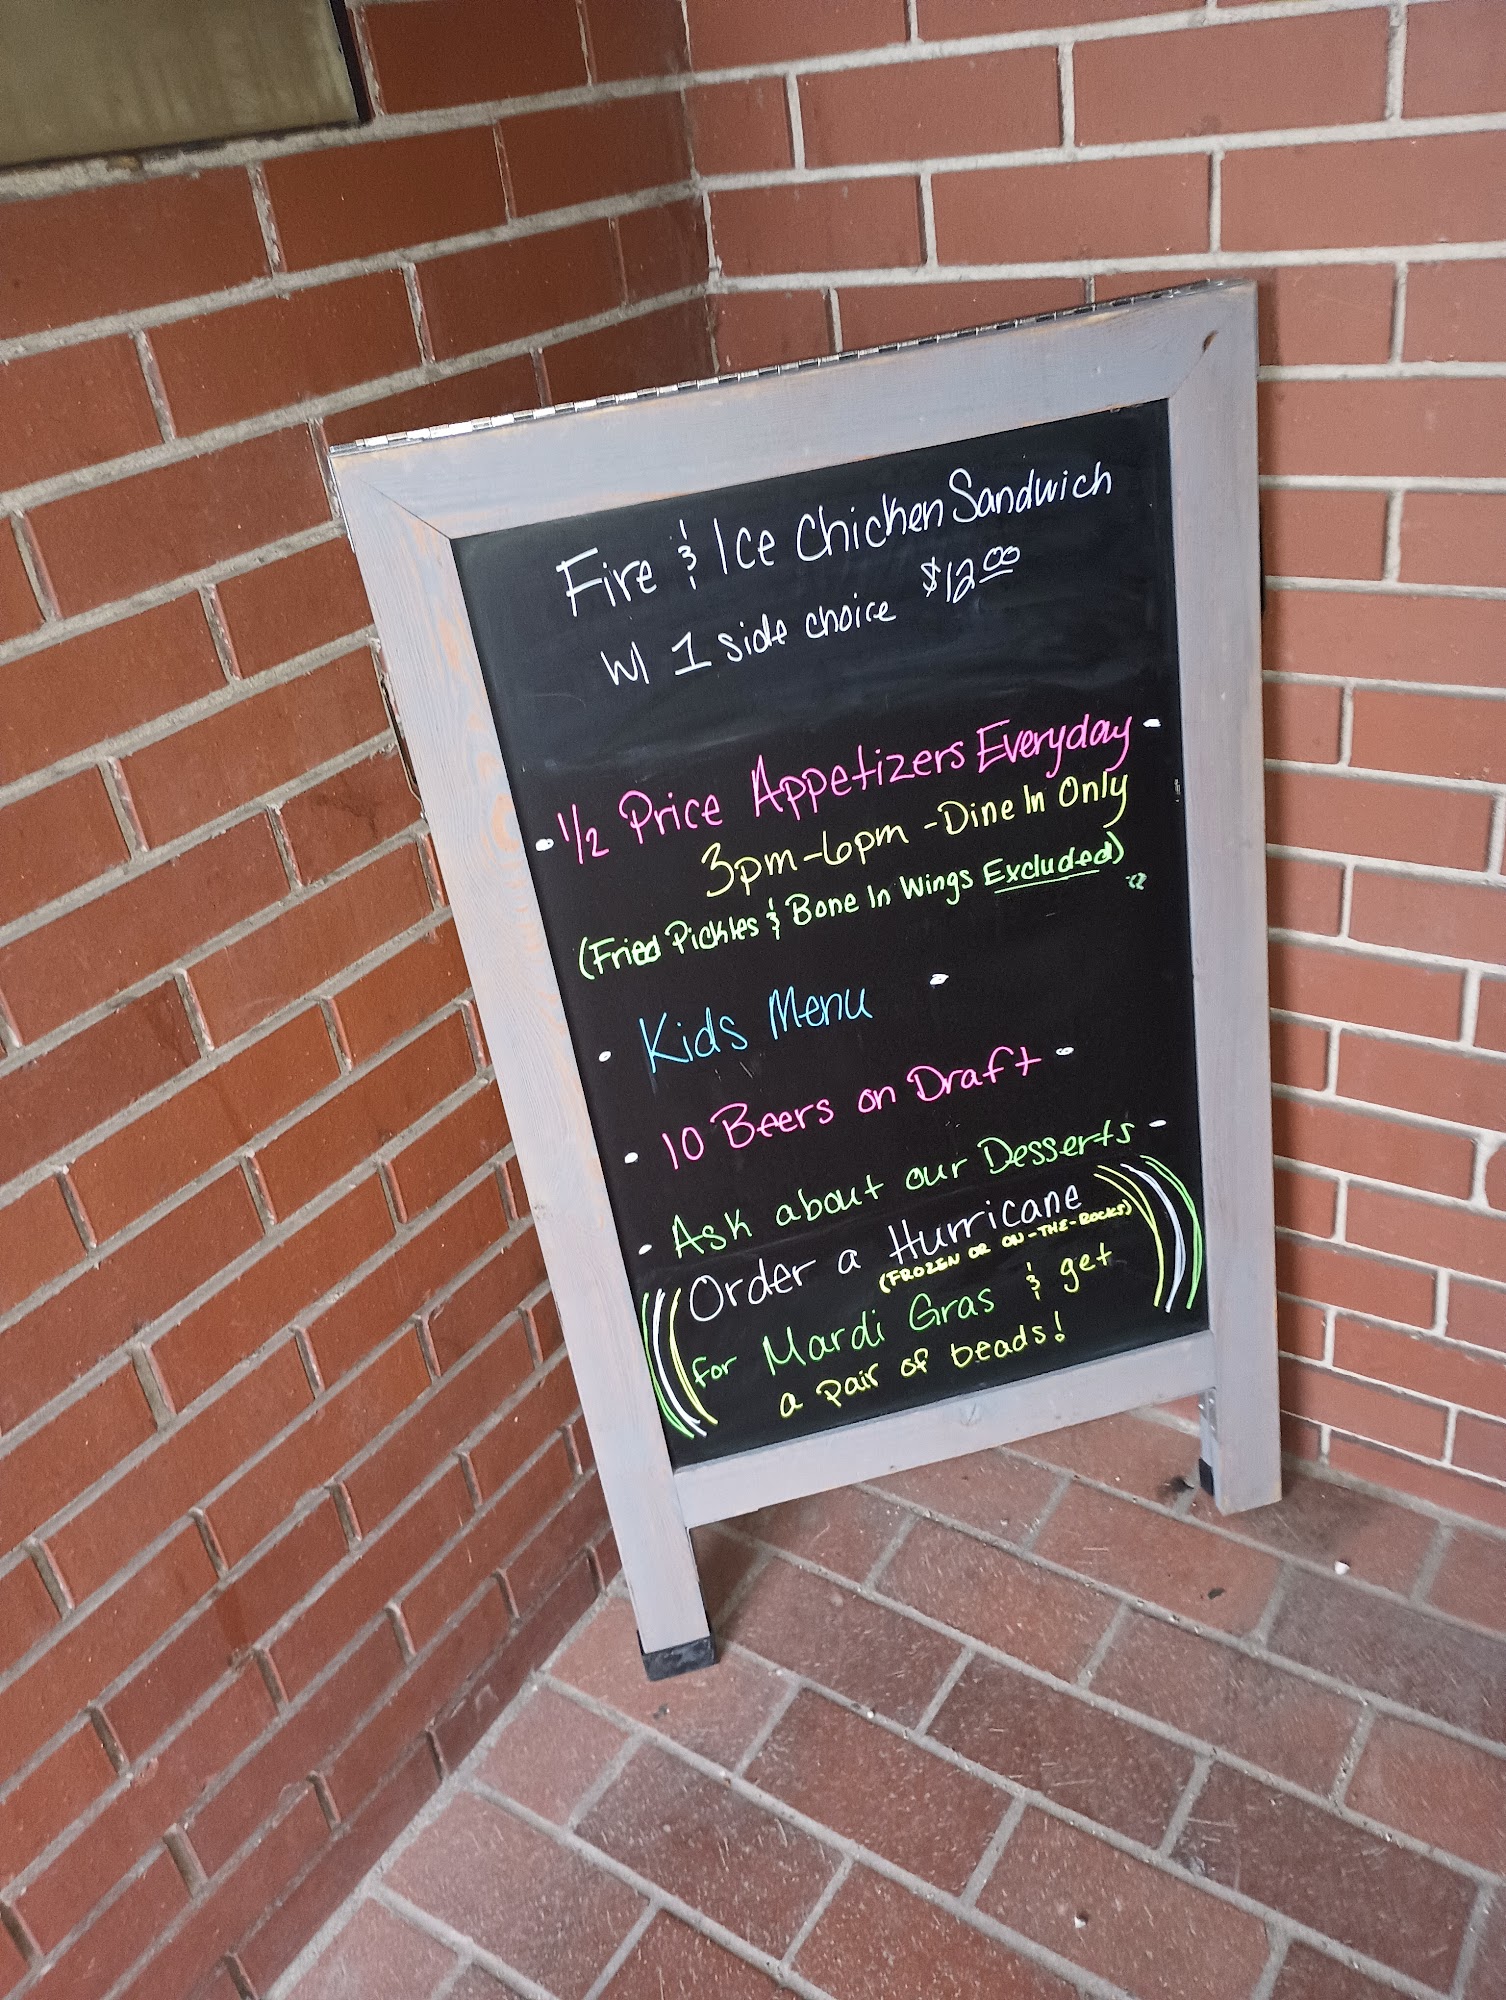 Fire & Ice Chicken Sandwich
w/ 1 side choice $12.00
• 1/2 Price Appetizers Everyday •
3pm-6pm - Dine In Only
(Fried Pickles & Bone In Wings Excluded)
• Kids Menu •
• 10 Beers on Draft •
• Ask about our Desserts •
Order a Hurricane
(FROZEN OR ON-THE-ROCKS)
for Mardi Gras & get
a pair of beads!